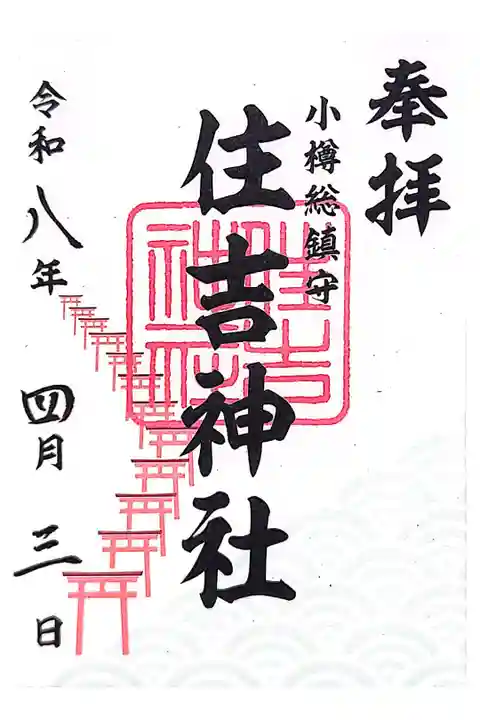 奉拝
小樽総鎮守
住吉神社
住吉神社
令和八年 四月 三日